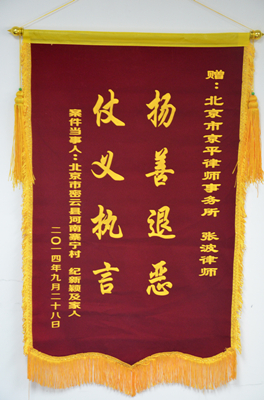 赠：北京市京平律师事务所 张波律师
扬善退恶
仗义执言
案件当事人：北京市密云县河南寨宁村 纪新颖及家人
二〇一四年九月二十八日